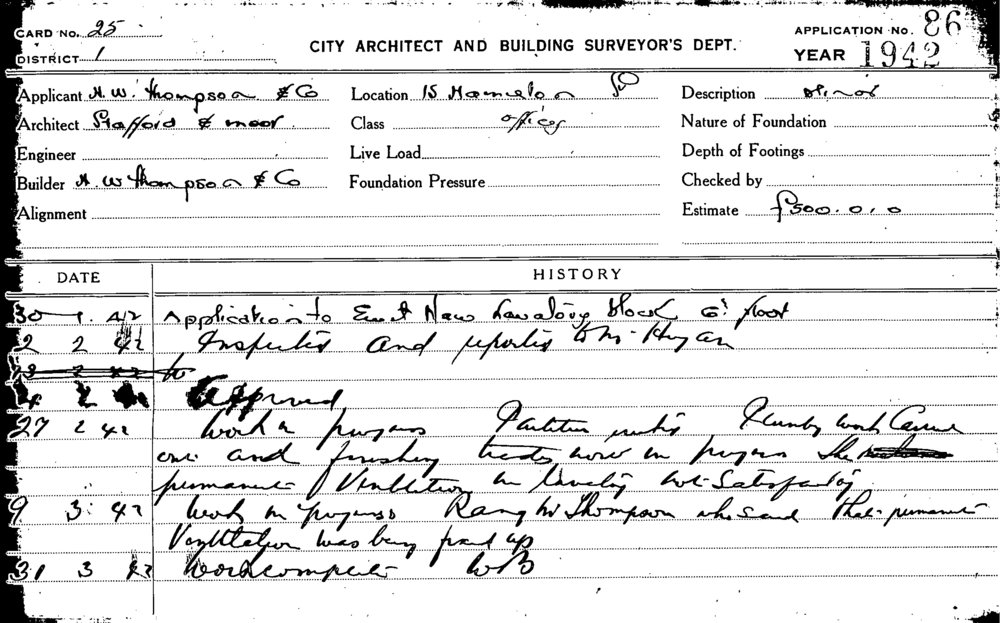 CARD No. 25
DISTRICT 1
CITY ARCHITECT AND BUILDING SURVEYOR'S DEPT.
APPLICATION No. 86
YEAR 1942
Applicant H. W. Thompson & Co
Location 15 Hamilton
Description Minor
Architect Stafford & moor
Class offices
Nature of Foundation
Engineer
Live Load
Depth of Footings
Builder H. W Thompson & Co
Foundation Pressure
Checked by
Alignment
Estimate £500.0.0
DATE
HISTORY
30 1. 42 Application to Erect New Lavatory Block floor
2 2 42 Inspected and reported to Mr
4 2 Approved
27 2 42 Work in progress Partition Work
and finishing trades now in progress The
permanent Ventilation in lavatory not Satisfactory
9 3. 42 Work in progress Rang Mr Thompson who said that permanent
Ventilation was being fixed up
31 3 42 Work complete